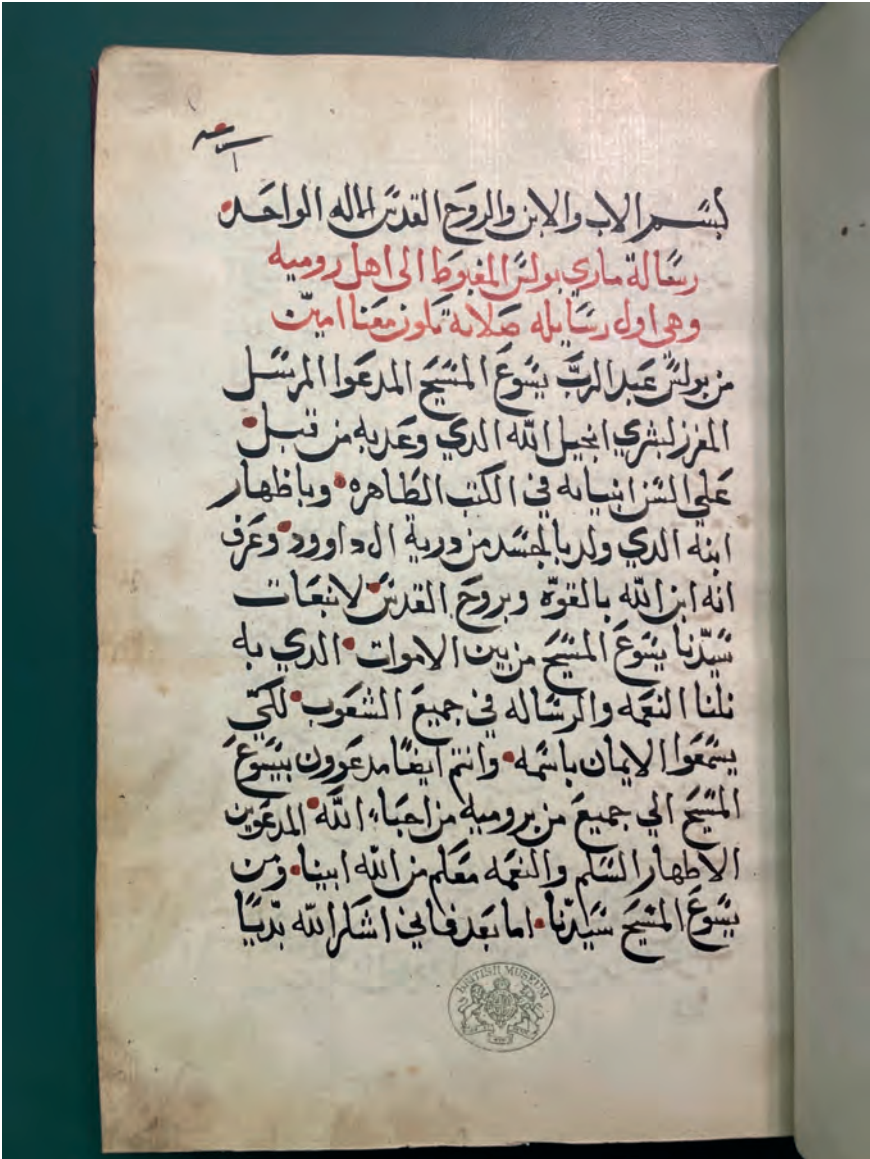 بسم الاب والابن والروح القدس الاله الواحد
رساله ماري بولس المغبوط الي اهل روميه
وهي اول رسايله صلاته تكون معنا امين
من بولس عبد الرب يسوع المسيح المدعوا المرسل
المفرز لبشري انجيل الله الدي وعد به من قبل
علي السن انبيايه في الكتب الطاهره وباظهار
ابنه الدي ولد بالجسد من درية ال داوود وعرف
انه ابن الله بالقوه وبروح القدس لانبعات
سيدنا يسوع المسيح من بين الاموات الدي به
نلنا النعمه والرساله في جميع الشعوب لكي
يسمعوا الايمان باسمه وانتم ايضا مدعوون بيسوع
المسيح الي جميع من بروميه من احباء الله المدعوين
الاطهار السلم والنعمه معكم من الله ابينا ومن
يسوع المسيح سيدنا اما بعد فاني اشكر الله بديا
BRITISH MUSEUM